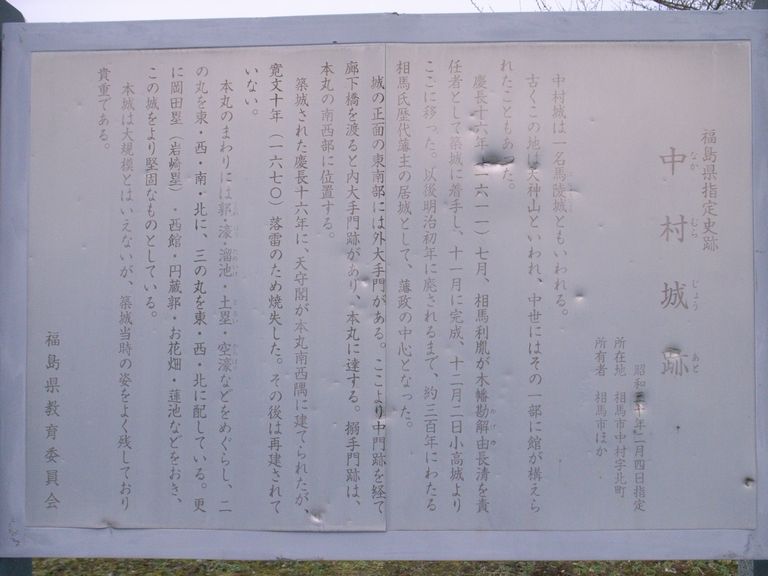 福島県指定史跡
中村城跡
なか むら じょう あと
昭和三十年二月四日指定
所在地 相馬市中村字北町
所有者 相馬市ほか
中村城は一名馬陵城ともいわれる。
古くこの地は天神山といわれ、中世にはその一部に館が構えら
れたこともあった。
慶長十六年(一六一一)七月、相馬利胤が木幡勘解由長清を責
かげゆ
任者として築城に着手し、十一月に完成、十二月二日小高城より
ここに移った。以後明治初年に廃されるまで、約三百年にわたる
相馬氏歴代藩主の居城として、藩政の中心となった。
城の正面の東南部には外大手門がある。ここより中門跡を経て
廊下橋を渡ると内大手門跡があり、本丸に達する。搦手門跡は、
本丸の南西部に位置する。
築城された慶長十六年に、天守閣が本丸南西隅に建てられたが、
寛文十年(一六七〇)落雷のため焼失した。その後は再建されて
いない。
本丸のまわりには郭・濠・溜池・土塁・空濠などをめぐらし、二
の丸を東・西・南・北に、三の丸を東・西・北に配している。更
に岡田塁(岩崎塁)・西館・円蔵郭・お花畑・蓮池などをおき、
この城をより堅固なものとしている。
本城は大規模とはいえないが、築城当時の姿をよく残しており
貴重である。
福島県教育委員会